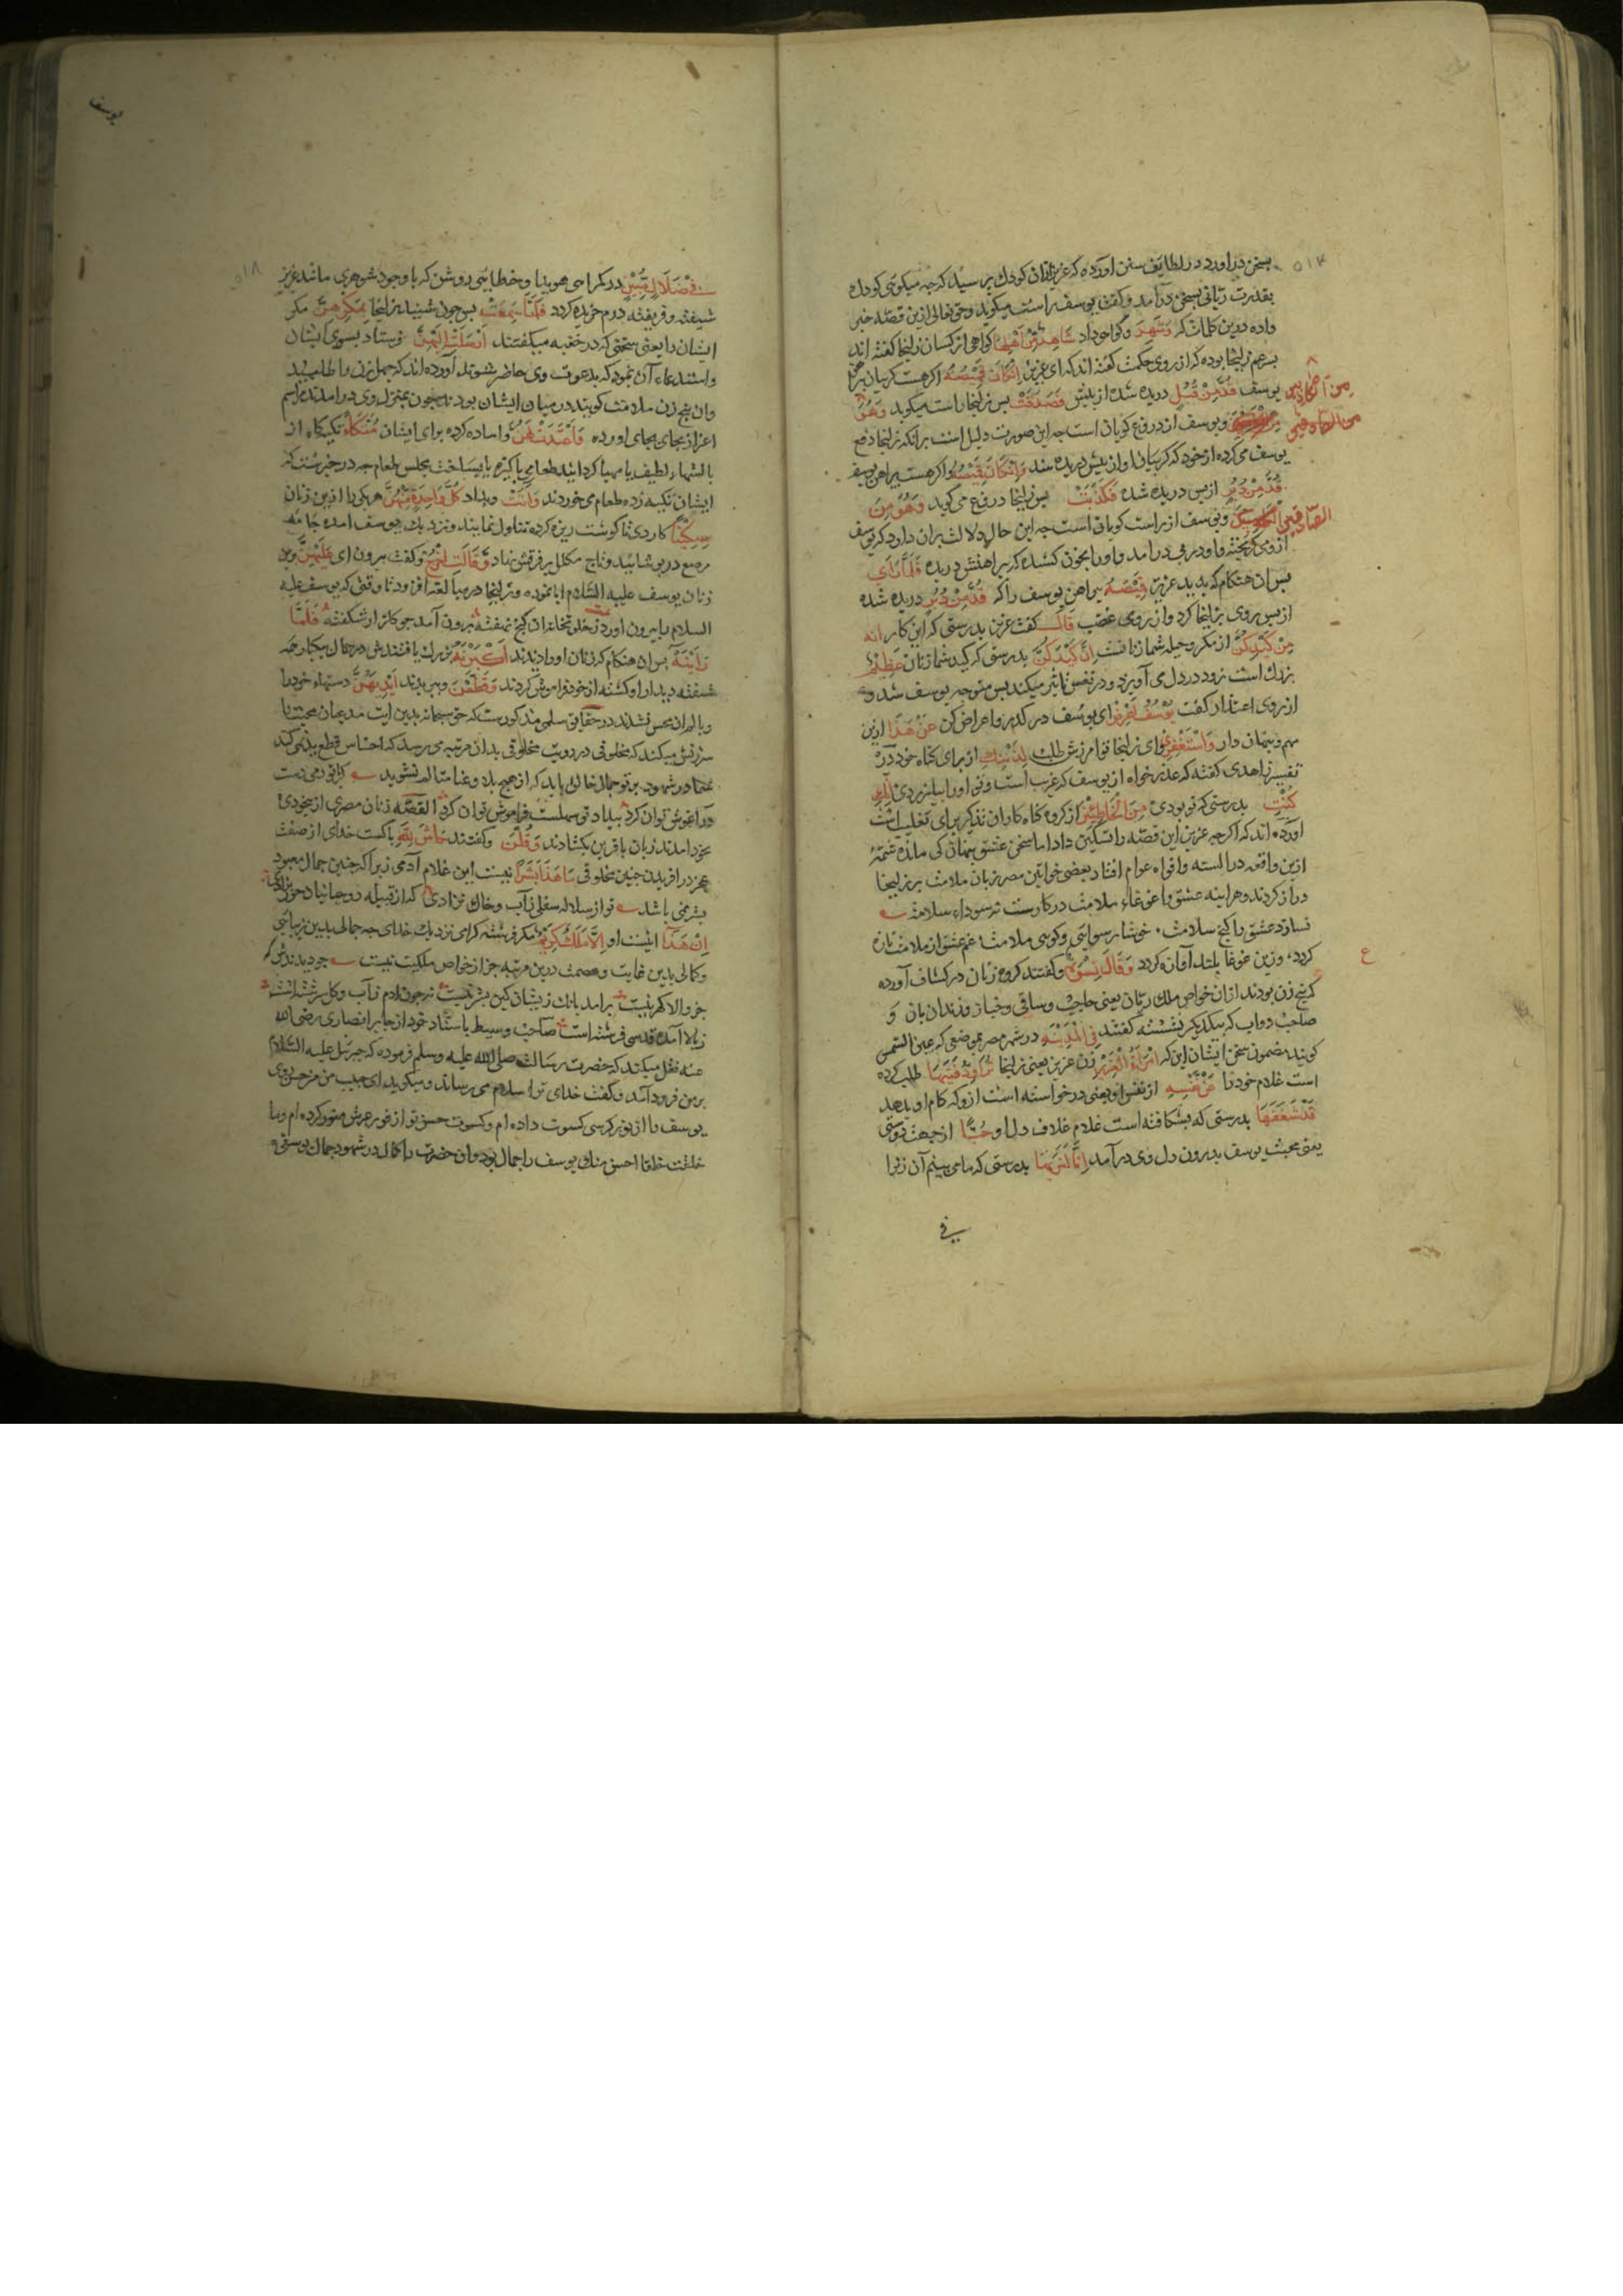 بسخن درآورد در لطایف سنن آورده که عزیز ازان کودك پرسید که چه میکوئی کودك
بقدرت ربانی بسخن درآمد و کفت یوسف راست میکوید و حق تعالی ازین قصه خبر
داده درین کلمات که وَشَهِدَ وکواهی داد شَاهِدٌ مِنْ اَهْلِهَا کواهی از کسان زلیخا کفته اند
پسر عم زلیخا بوده که از روی حکمت کفته اند که ای عزیز اِنْ كَانَ قَمِيصُهُ اکر هست کریبان پیراهن
یوسف قُدَّ مِنْ قُبُلٍ دریده شده از پیش فَصَدَقَتْ پس زلیخا راست میکوید وَهُوَ
مِنَ الکاذبین
ویوسف از دروغ کویان است چه این صورت دلیل است برآنکه زلیخا دفع
یوسف می کرده از خود که کریبان او از پیش دریده شد وَاِنْ كَانَ قَمِيصُهُ واکر هست پیراهن یوسف
قُدَّ مِنْ دُبُرٍ از پس دریده شده فَكَذَبَتْ پس زلیخا دروغ می کوید وَهُوَ مِنَ
الصّادقین ویوسف از راست کویان است چه این حال دلالت بران دارد که یوسف
ازو می کریخته و او در پی در آمد و او را بخود کشیده که پیراهنش دریده فَلَمَّا رَاٰى
پس ان هنکام که بدید عزیز قَمِيصَهُ پیراهن یوسف را که قُدَّ مِنْ دُبُرٍ دریده شده
از پس روی بزلیخا کرد و از روی غضب قَالَ کفت عزیز بدرستی که این کار اِنَّهُ
مِنْ كَيْدِكُنَّ از مکر وحیله شما زنانست اِنَّ كَيْدَكُنَّ بدرستی که کید شما زنان عَظِيمٌ
بزرك است زود در دل می آویزد و در نفس تاثیر میکند پس متوجه یوسف شد و
از روی اعتذار کفت يُوسُفُ اَعْرِضْ ای یوسف در کذر و اعراض کن عَنْ هٰذَا ازین
مهم و پنهان دار وَاسْتَغْفِرِي وای زلیخا تو آمرزش طلب لِذَنْبِكِ از برای کناه خود در
تفسیر زاهدی کفته که عذر خواه از یوسف که غریب است و تو او را بیازردی اِنَّكِ
كُنْتِ بدرستی که تو بودی مِنَ الْخَاطِئِينَ از کروه کناه کاران تذکیر برای تغلیب است
آورده اند که اکرچه عزیز این قصه را تسکین داد اما سخن عشق پنهان کی ماند شمّهٔ
ازین واقعه در السنه و افواه عوام افتاد بعضی خواتین مصر زبان ملامت بر زلیخا
دراز کردند و هر اینه عشق را غوغاء ملامت درکارست نه سوداء سلامت
نسازد عشق را کنج سلامت خوشا رسوایی وکوی ملامت غم عشق از ملامت تازه
کردد وزین غوغا بلند آوازه کردد وَقَالَ نِسْوَةٌ وکفتند کروه زنان در کشاف آورده
که پنج زن بودند ازان خواص ملك ریان یعنی حاجب و ساقی و خباز و زندان بان و
صاحب دواب که بیکدیکر نشسته کفتند فِي الْمَدِينَةِ در شهر مصر بموضعی که عین الشمس
کویند مضمون سخن ایشان این که امْرَاَتُ الْعَزِيزِ زن عزیز یعنی زلیخا تُرَاوِدُ فَتَيٰهَا طلب کرده
است غلام خود را عَنْ نَفْسِهِ از نفس او یعنی درخواسته است ازو که کام او بدهد
قَدْ شَغَفَهَا بدرستی که بشکافته است غلام غلاف دل او حُبًّا از جهت دوستی
یعنی محبت یوسف بدرون دل وی درآمد اِنَّا لَنَرٰيهَا بدرستی که ما می بینم آن زنرا
فی
یوسف
فِي ضَلَالٍ مُبِينٍ در کمراهی هویدا و خطایی روشن که با وجود شوهری مانند عزیز
شیفته و فریفته درم خریده کردد فَلَمَّا سَمِعَتْ پس چون شنید زلیخا بِمَكْرِهِنَّ مکر
ایشان را یعنی سخنی که در خفیه میکفتند اَرْسَلَتْ اِلَيْهِنَّ فرستاد بسوی ایشان
واستدعاء آن نمود که بدعوت وی حاضر شوند آورده اند که چهل زن را طلبید
وان پنج زن ملامت کویند در میان ایشان بودند چون بمنزل وی درامدند مراسم
اعزاز بجای اورده وَاَعْتَدَتْ لَهُنَّ واماده کرده برای ایشان مُتَّكَأً تکیکاه از
ایشان تکیه زده طعام می خوردند وَاٰتَتْ وبداد كُلَّ وَاحِدَةٍ مِنْهُنَّ هر یکی را ازین زنان
سِكِّينًا کاردی تا کوشت ریزه کرده تناول نمایند و نزدیك یوسف امده جامه
مرصع در پوشانید و تاج مکلل بر فرقش نهاد وَقَالَتِ اخْرُجْ وکفت بیرون ای عَلَيْهِنَّ برین
زنان یوسف علیه السّلام ابا نموده و زلیخا در مبالغه افزود تا وقتی که یوسف علیه
السلام را بیرون آورد ز خلوتخانه ان کنج نهفته برون آمد چو کلزار شکفته فَلَمَّا
رَاَيْنَهُ پس ان هنکام که زنان او را دیدند اَكْبَرْنَهُ بزرك یافتندش در جمال بیکبارجه
شیفته دیدار او کشته از خود فراموش کردند وَقَطَّعْنَ وببریدند اَيْدِيَهُنَّ دستهاء خود را
وبا لم ان محس نشدند در حقایق سلمی مذکورست که حق سبحانه بدین ایت مدعیان محبت را
سرزنش میکند که مخلوقی در رویت مخلوقی بدان مرتبه می رسد که احساس قطع ید نمی کند
شما در شهود پرتو جمال خالق باید که از هیچ بلا و عنا متالم نشوید کر با تو دمی دست
در آغوش توان کرد بیداد تو سهلست فراموش توان کرد القصه زنان مصری از بیخودی
بخود امدند زبان بافرین بکشادند وَقُلْنَ وکفتند حَاشَ لِلّٰهِ پاکست خدای از صفت
عجز در افریدن چنین مخلوقی مَا هٰذَا بَشَرًا نیست این غلام آدمی زیرا که چنین جمال معهود
بشر نمی باشد تو از سلاله سفلی ز آب وخاك نزادی که از قبیله روحانیان
اِنْ هٰذَا نیست او اِلَّا مَلَكٌ كَرِيمٌ مکر فرشته کرامی نزدیك خدای چه جمالی بدین زیبایی
وکمالی بدین غایت وعصمت درین مرتبه جز از خواص ملکیت نیست چو دیدندش که
جز والا کهر نیست برامد بانك زیشان کین بشر نیست نه چون آدم ز آب و کل سرشتست
ز بالا آمده قدسی فرشته است صاحب وسیط باسناد خود از جابر انصاری رضی الله
عنه نقل میکند که حضرت رسالت صلی الله علیه وسلم فرموده که جبرئیل علیه السّلام
بر من فرود آمد و کفت خدای ترا سلام می رساند ومیکوید ای حبیب من من حسن روی
یوسف را از نور کرسی کسوت داده ام وکسوت حسن تو از نور عرش منور کرده ام وما
خلقت خلقا احسن منك یوسف را جمال بود وان حضرت را کمال در شهود جمال یوسفی و